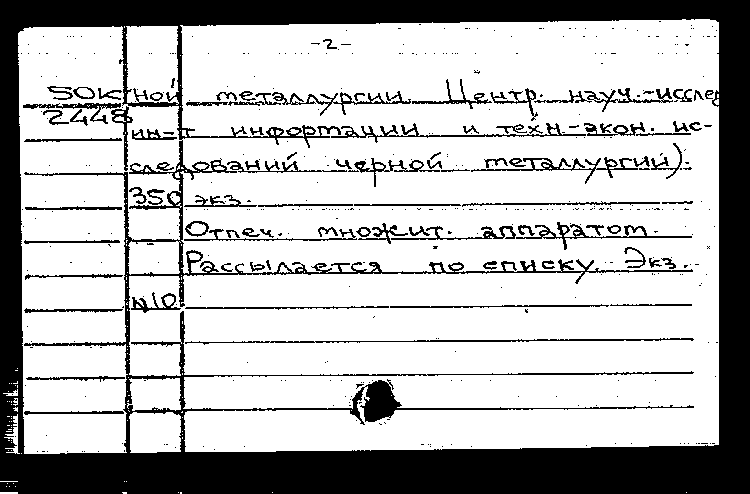 -2-
50к ной металлургии Центр. науч.-исслед
2448
ин-т информации и техн.-экон. ис-
следований черной металлургии).
350 экз.
Отпеч. множит. аппаратом.
Рассылается по списку. Экз.
N10